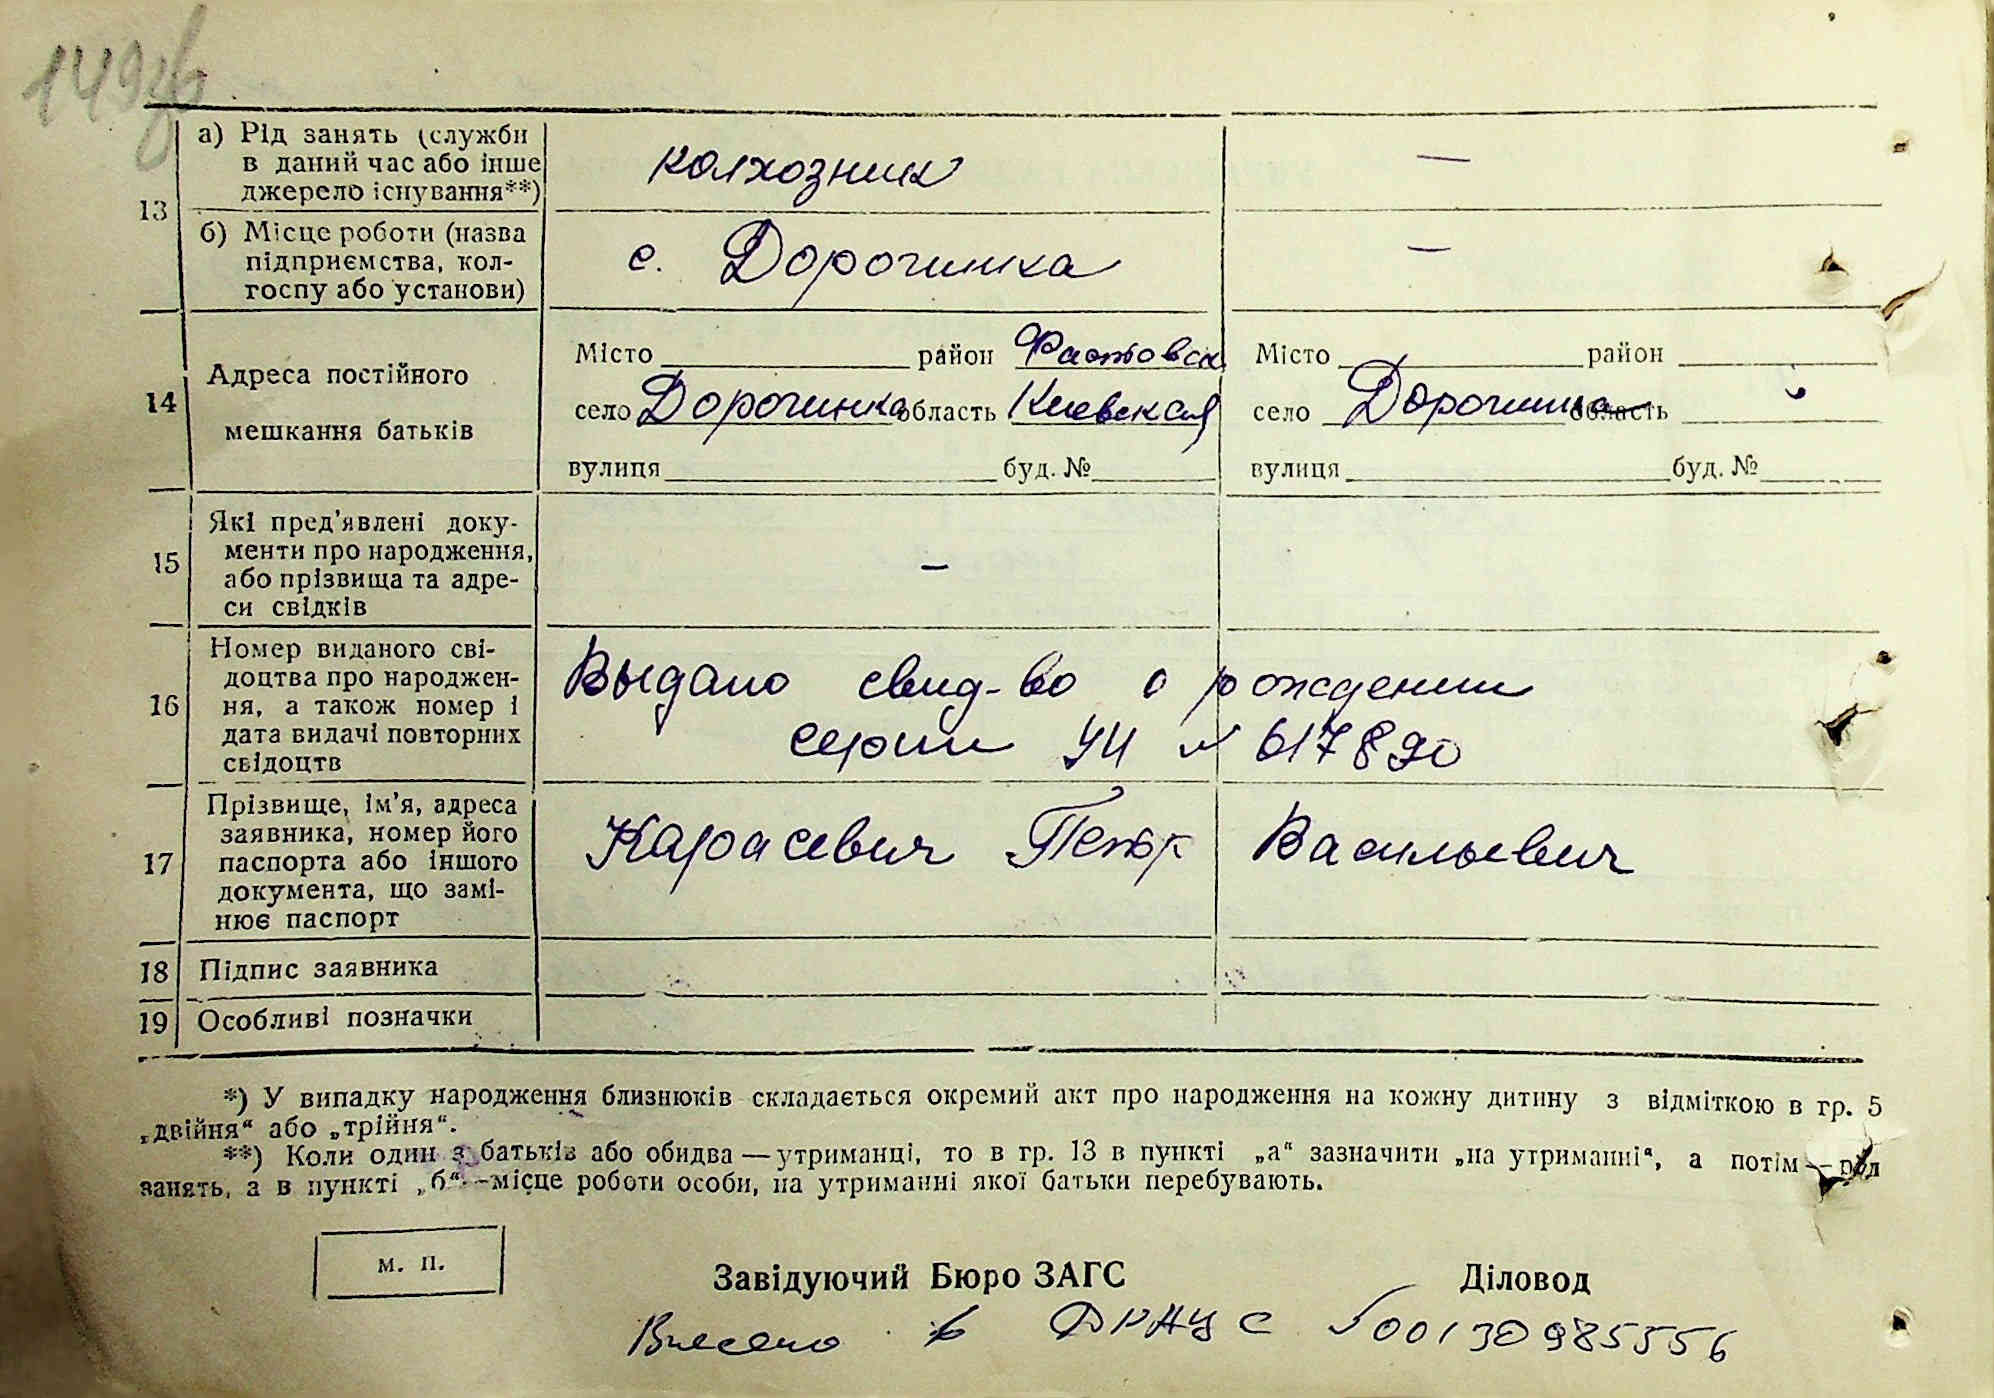 149зв
а) Рід занять (служби
в даний час або інше
джерело існування**)
колхозник
—
13
б) Місце роботи (назва
підприємства, кол-
госпу або установи)
с. Дорогинка
—
14
Адреса постійного
мешкання батьків
Місто район Фастовск
село Дорогинка область Киевская
вулиця буд. №
Місто район
село Дорогинка область "
вулиця буд. №
15
Які пред'явлені доку-
менти про народження,
або прізвища та адре-
си свідків
—
16
Номер виданого сві-
доцтва про народжен-
ня, а також номер і
дата видачі повторних
свідоцтв
Выдано свид-во о рождении
серии УЧ № 617890
17
Прізвище, ім'я, адреса
заявника, номер його
паспорта або іншого
документа, що замі-
нює паспорт
Карасевич Петр Васильевич
18 Підпис заявника
19 Особливі позначки
*) У випадку народження близнюків складається окремий акт про народження на кожну дитину з відміткою в гр. 5
„двійня“ або „трійня“.
**) Коли один з батьків або обидва — утриманці, то в гр. 13 в пункті „а“ зазначити „на утриманні“, а потім — рід
занять, а в пункті „б“ —місце роботи особи, на утриманні якої батьки перебувають.
м. п.
Завідуючий Бюро ЗАГС
Діловод
Внесено в ДРАЦС №00130985556